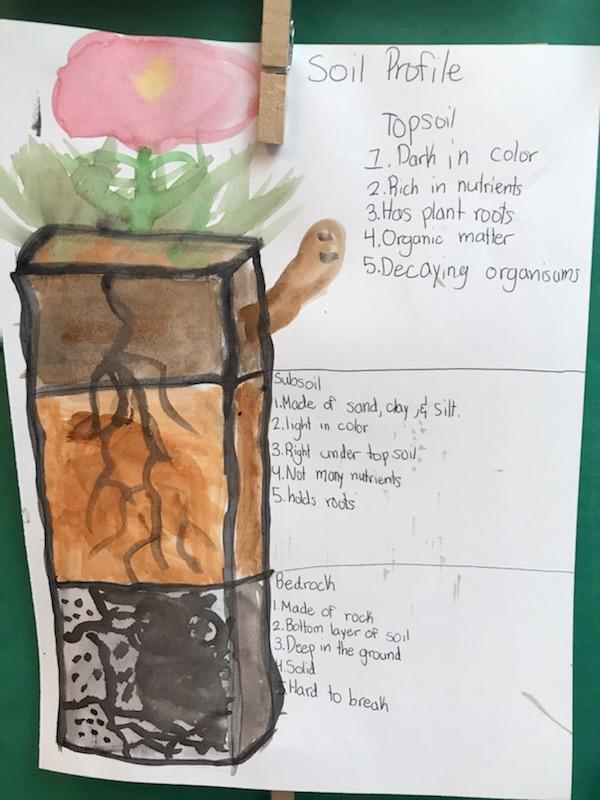 Soil Profile
Topsoil
1. Dark in color
2. Rich in nutrients
3. Has plant roots
4. Organic matter
5. Decaying organisums
Subsoil
1. Made of sand, clay, & silt.
2. light in color
3. Right under top soil
4. Not many nutrients
5. holds roots
Bedrock
1. Made of rock
2. Bottom layer of soil
3. Deep in the ground
4. Solid
5. Hard to break